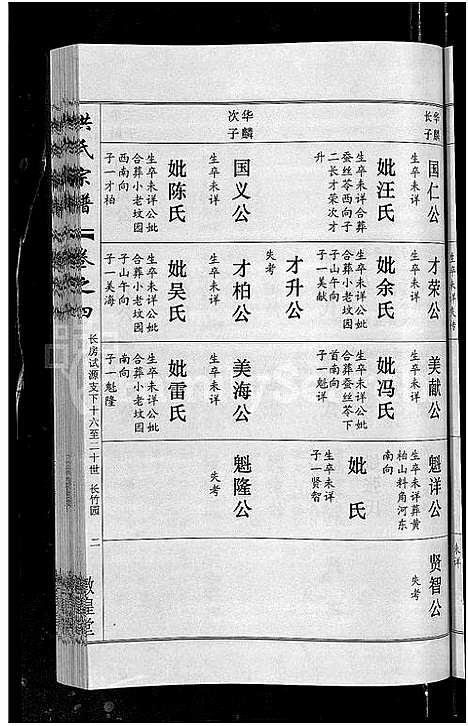 华麟
长子
国仁公
生卒未详
妣汪氏
生卒未详合葬
蚕丝苓西向子
二长才荣次才
升
华麟
次子
国义公
生卒未详
妣陈氏
生卒未详公妣
合葬小老坟园
西南向
子一才柏
才荣公
生卒未详
妣余氏
生卒未详公妣
合葬小老坟园
子山午向
子一美献
才升公
失考
才柏公
生卒未详
妣吴氏
生卒未详公妣
合葬小老坟园
子山午向
子一美海
美献公
生卒未详
妣冯氏
生卒未详公妣
合葬蚕丝苓下
首南向
子一魁详
美海公
生卒未详
妣雷氏
生卒未详公妣
合葬小老坟园
南向
子一魁隆
魁洋公
生卒未详葬黄
柏山料角河东
南向
妣 氏
生卒未详
子一贤智
魁隆公
失考
贤智公
失考
洪氏宗谱
卷之四
长房试源支下十六至二十世 长竹园
二
敦煌堂